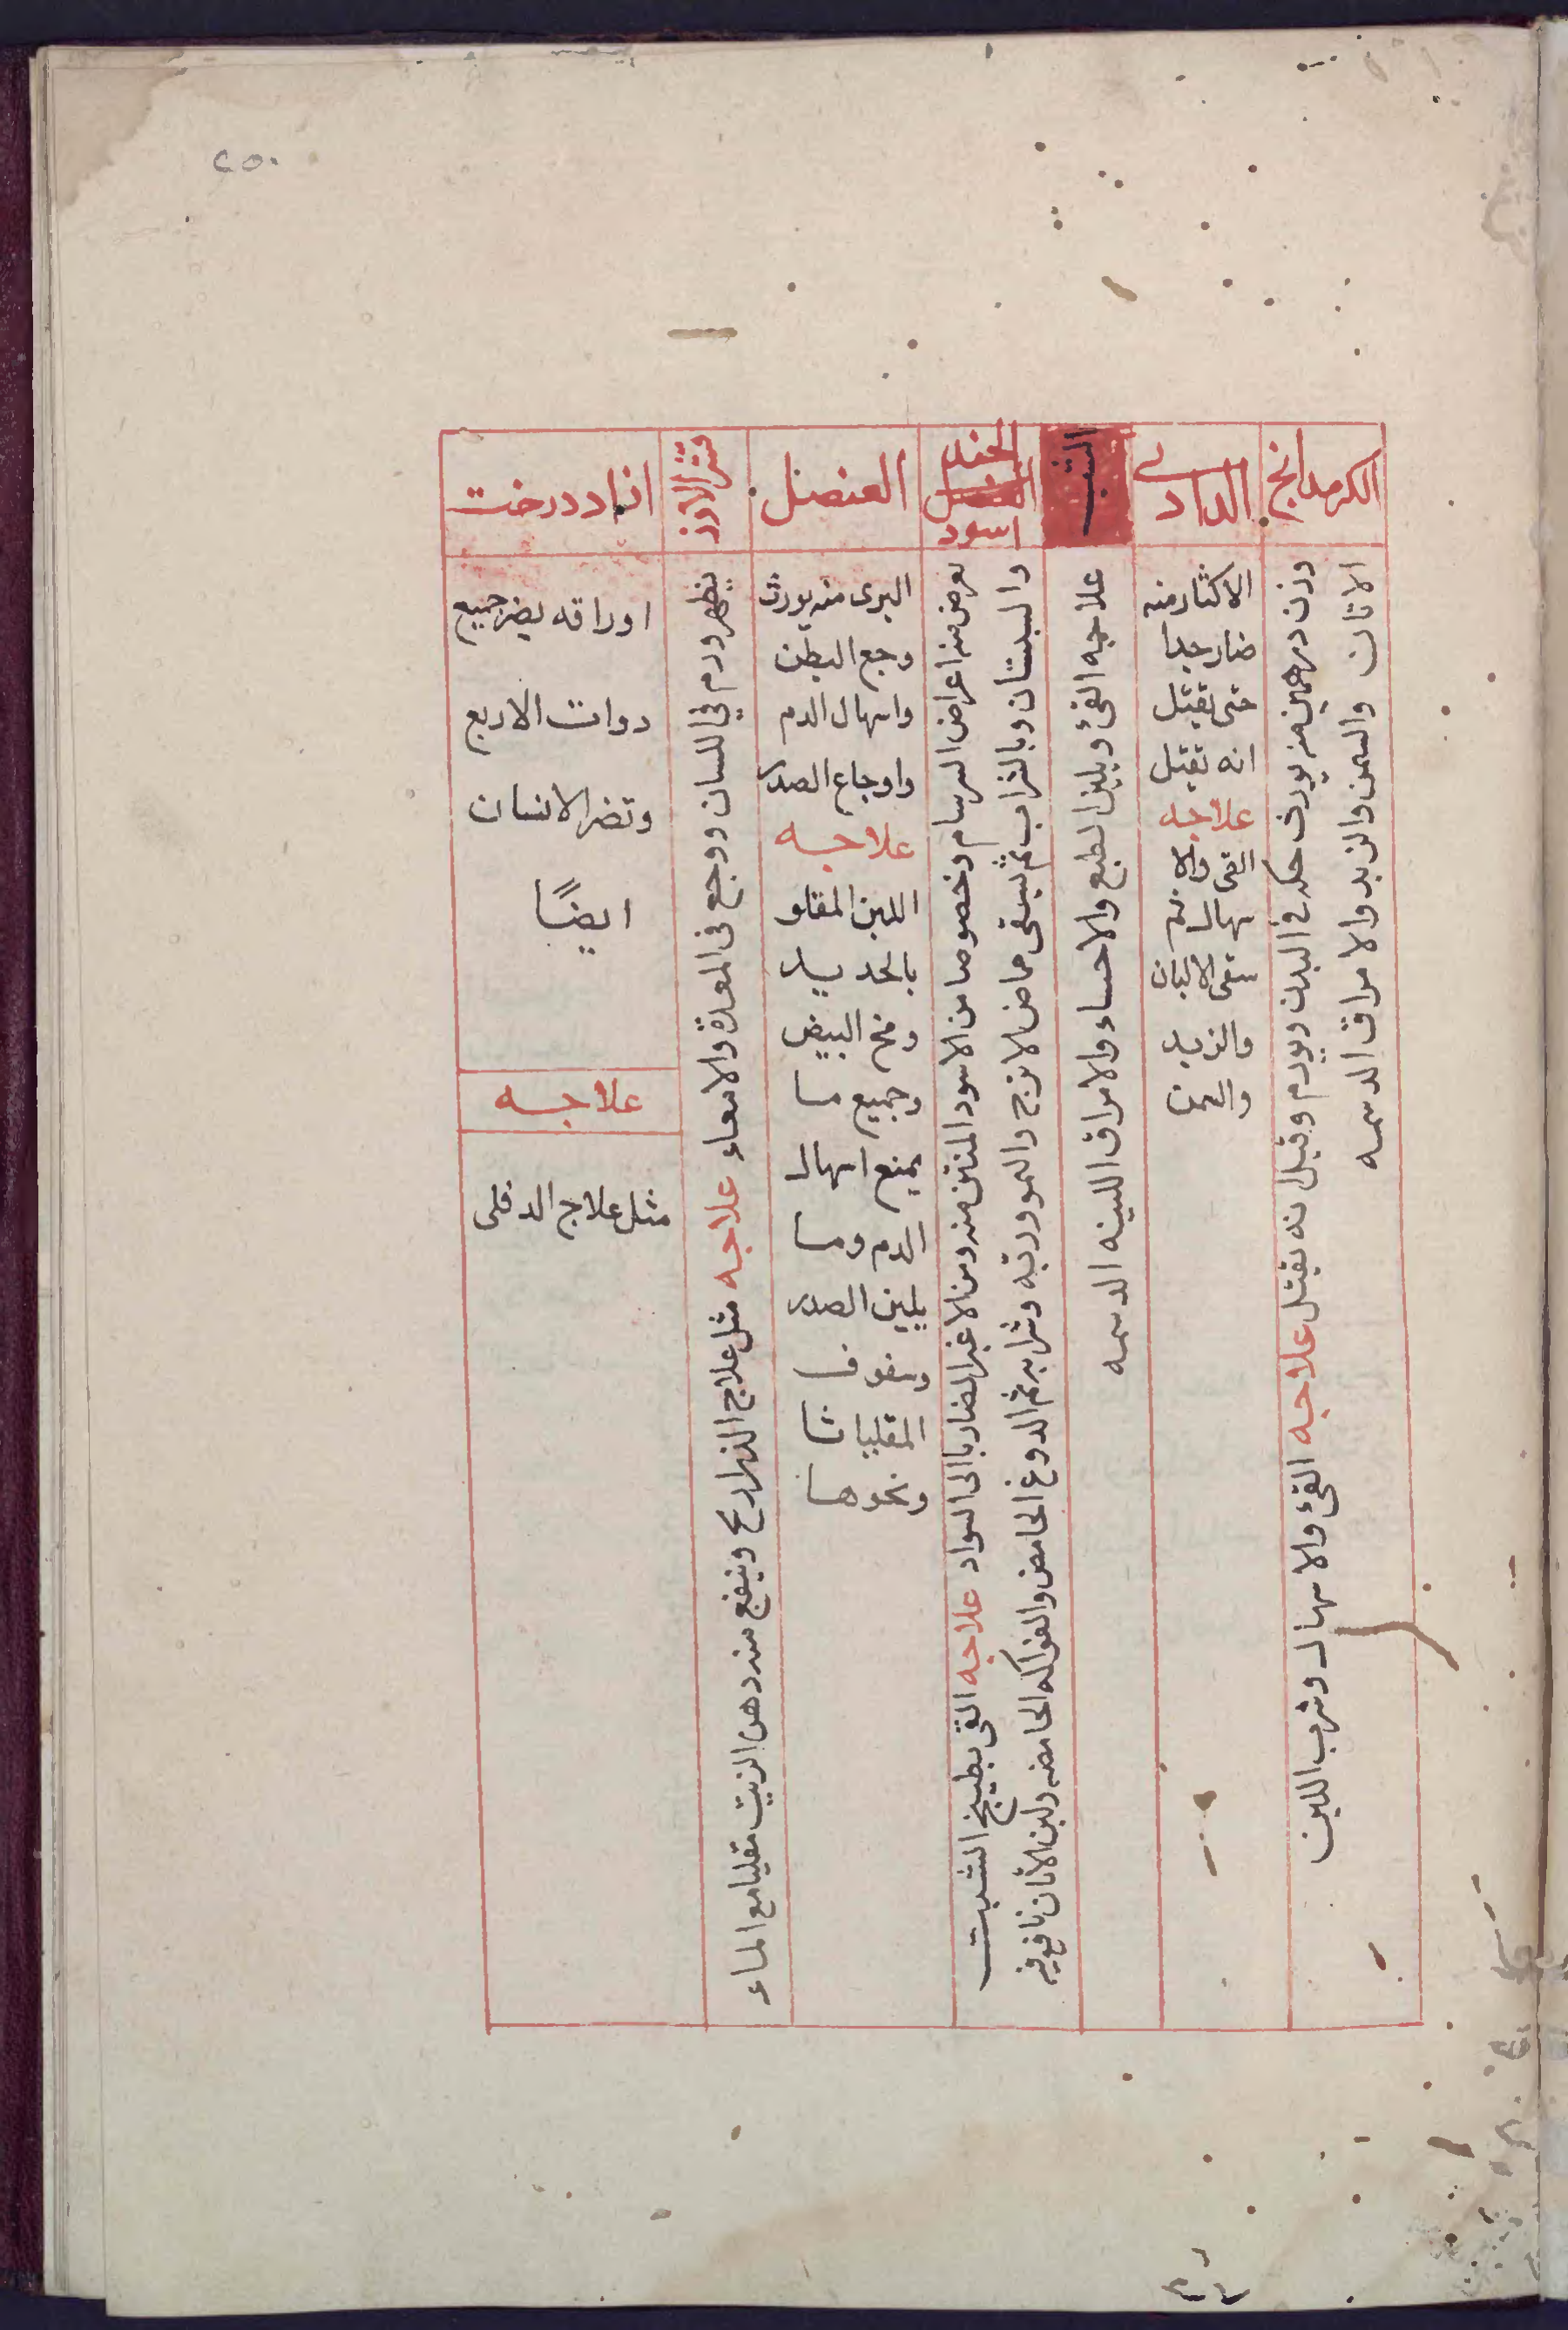 ٢٥٠
الكرمدانج
وزن درهمين منه يورث حكه في البدن ويورم وقيل انه يقتل علاجه القئ والاسهال وشرب اللبن
الاتان والسمن والزبد والامراق الدسمه
الدادى
الاكثار منه
ضار جدا
حتى قيل
انه يقتل
علاجه
القى والا
سهال ثم
سقى الالبان
والزبد
والسمن
علاجه القئ ويلين الطبع والاحساء والامراق اللينه الدسمه
اسود
يعرض منه اعراض السرسام وخصوصا من الاسود المنتن منه ومن الاغبر الضارب الى السواد علاجه القى بطبيخ الشبت
والبستان وبالشراب ثم يسقى حماض الاترج والتمر وربه وشرابه ثم الدوغ الحامض والفواكه الحامضه ولبن الاتان نافع فيه
العنصل
البرى منه يورث
وجع البطن
واسهال الدم
واوجاع الصدر
علاجه
اللبن المقلو
بالحديد
وفيه البيض
وجميع ما
يمنع اسهال
الدم وما
يلين الصدر
وسفوف
المقلياثا
ونحوها
قشر الارز
يظهر ورم في اللسان ووجع فى المعدة والامعاء علاجه مثل علاج الذراريح وينفع منه دهن الزيت مقليا مع الماء
ازاددرخت
اوراقه يضر جميع
دوات الاربع
وتضر الانسان
ايضًا
علاجه
مثل علاج الدفلى